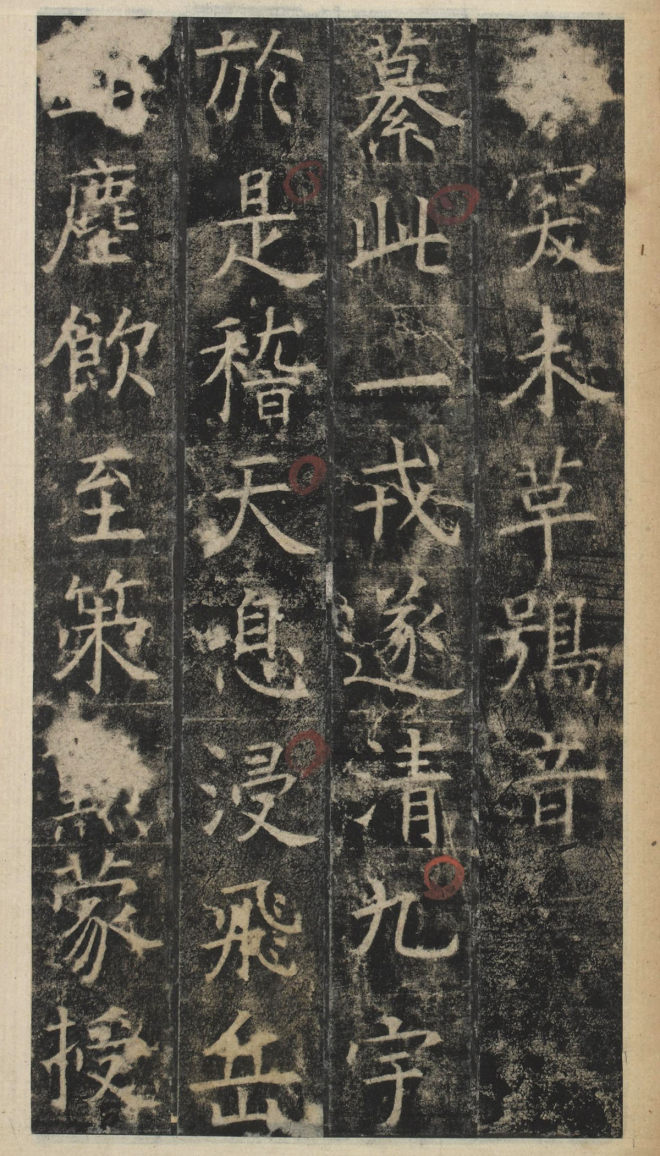 未草鴞音
此一戎遂清九宇
於是稽天息浸飛岳
塵飲至策蒙授